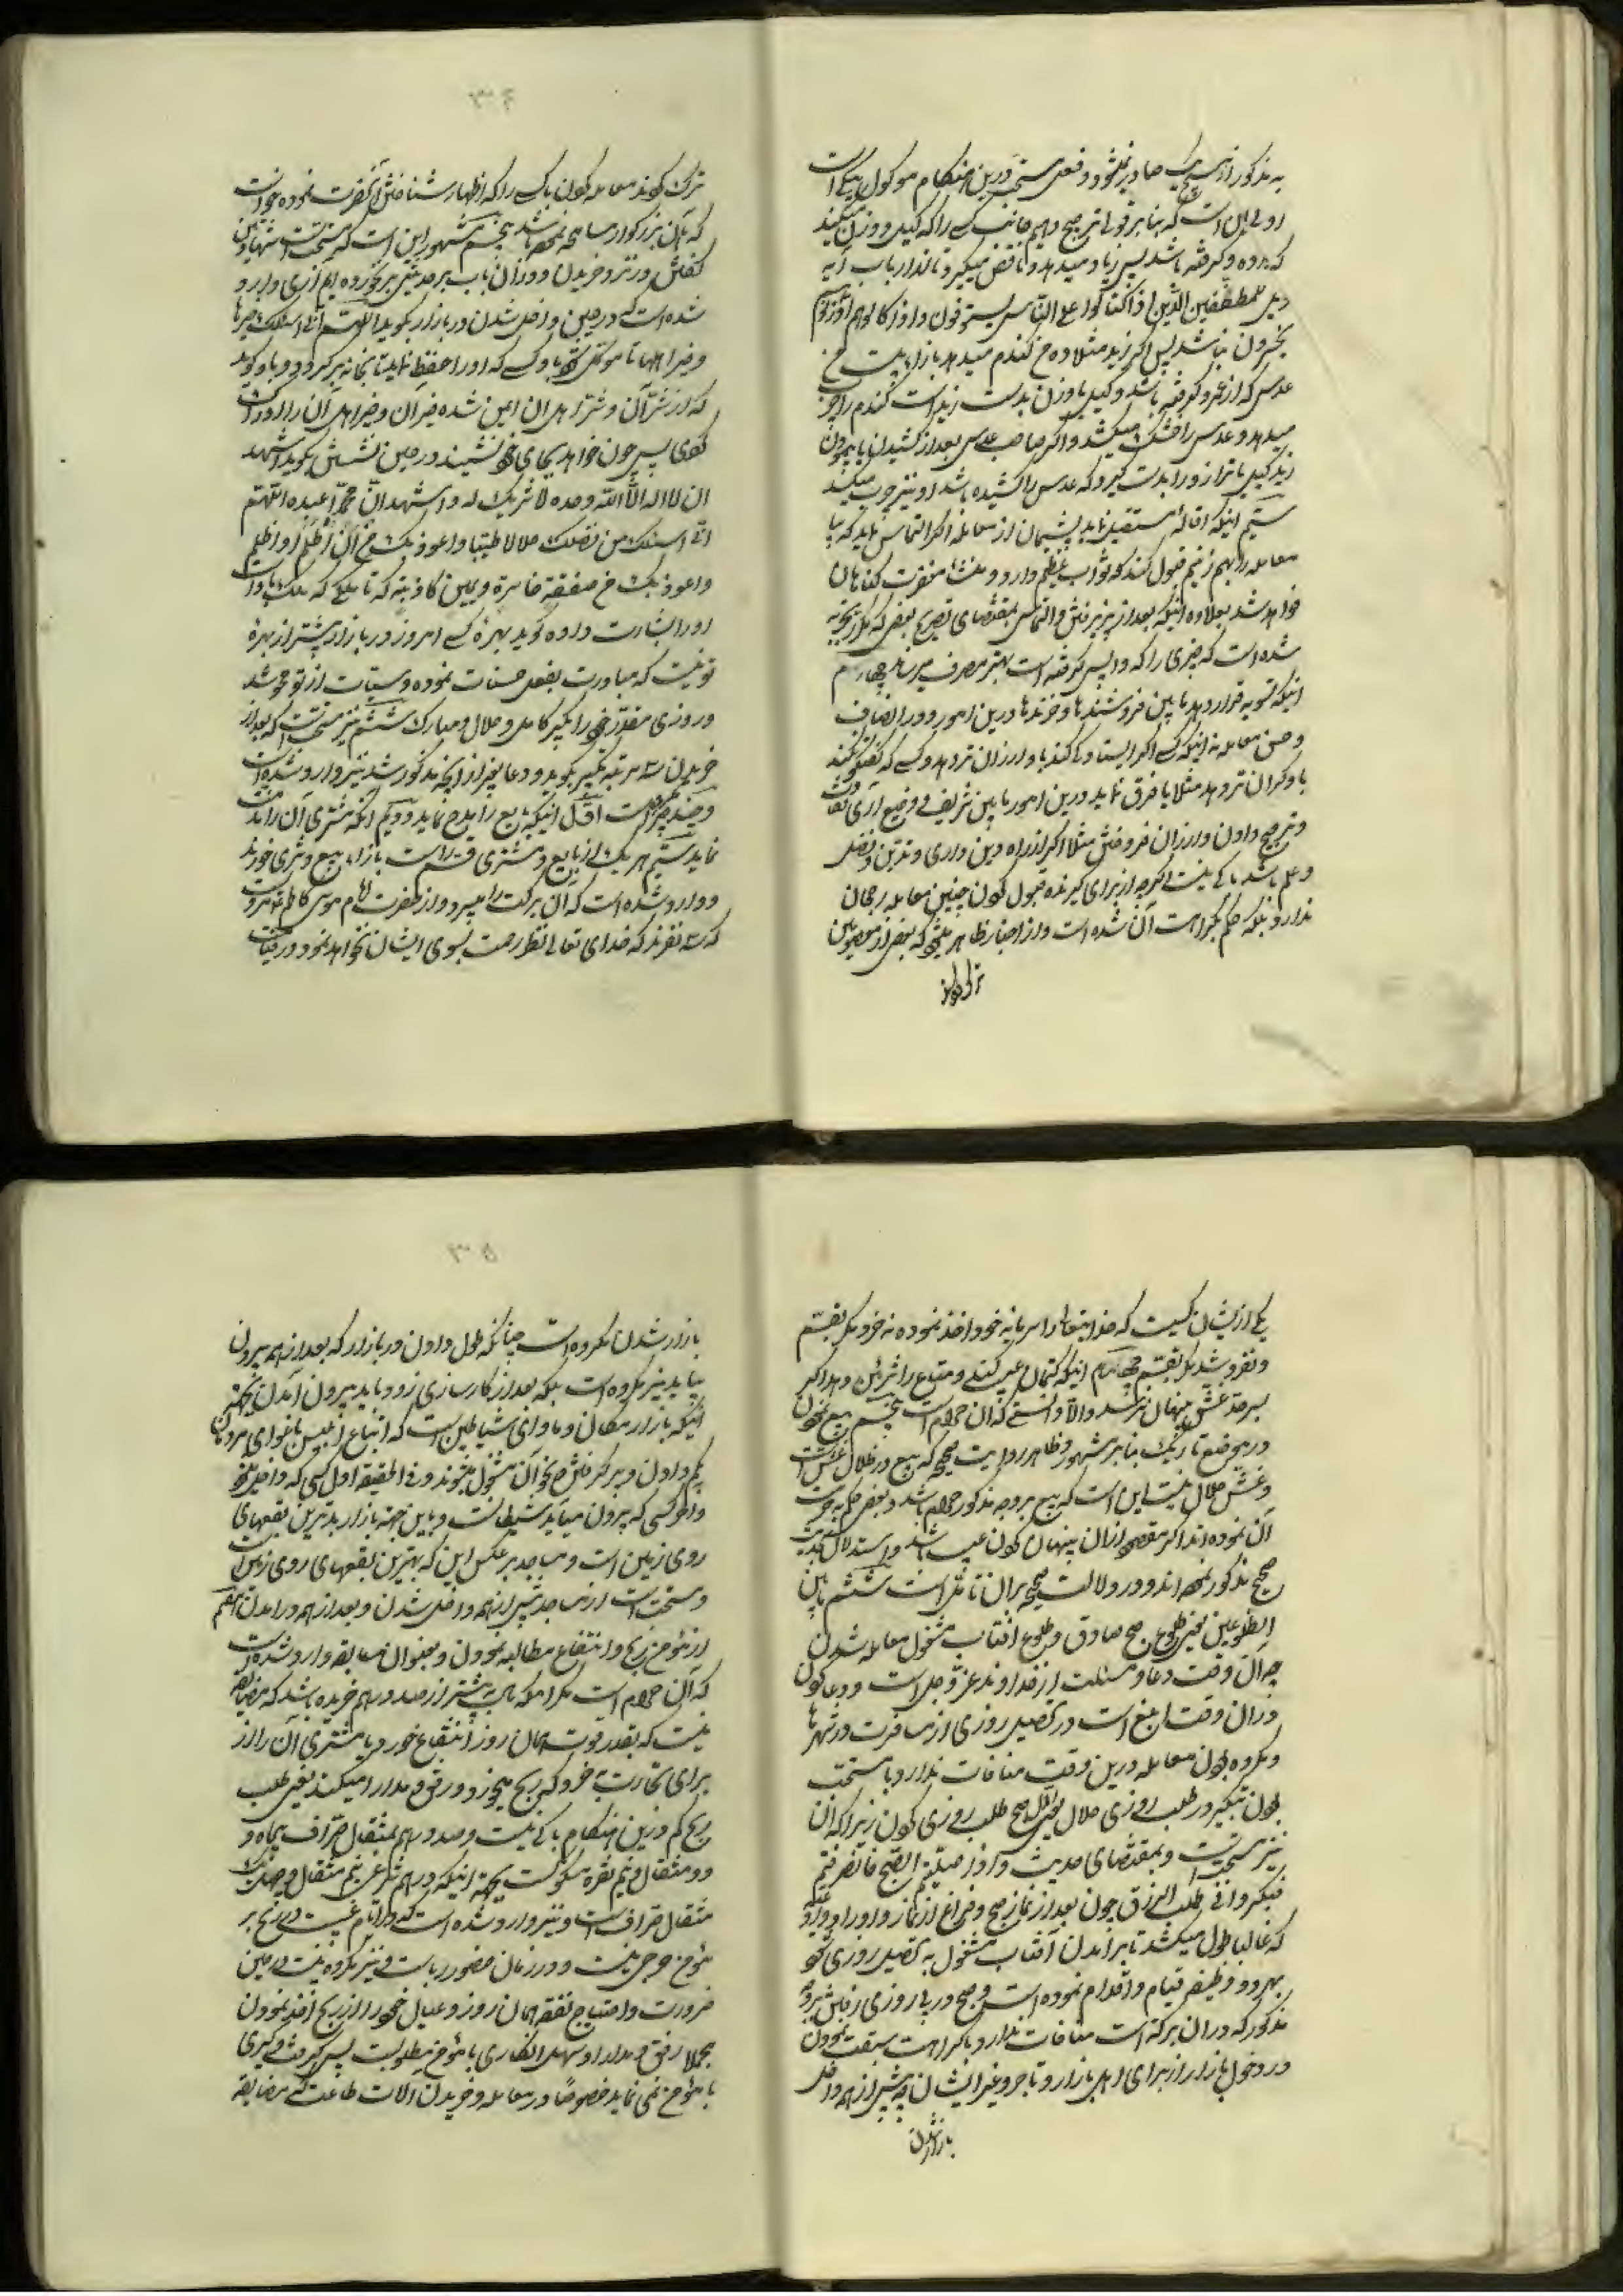 به مذکور از هیچیک صادر نمیشود و فعل مستحب درین هنگام موکول بیکی است
اولی آن است که بنابر قولی ترجیح دهیم جانب کسی را که کیل و وزن میکند
که داده و گرفته باشد پس زیاد میدهد و ناقص میگیرد تا نداند باب آیه
ویل للمطففین الذین اذا اکتالوا علی الناس یستوفون و اذا کالوهم او وزنوهم
یخسرون نباشد پس اگر زید مثلا ده من گندم میدهد بازاء بیست من
عدسی که از عمرو گرفته باشد و کیل یا وزن بدست زید است گندم را چرب
میدهد و عدس را خشک میکشد و اگر صاحب عدس بعد از کشیدن یا پیمودن
زید کیل یا ترازو را بدست گیرد که عدس را کشیده باشد او نیز چرب میکند
سیم اینکه اقاله مستقیل نماید پشیمان از معامله اگر التماس نماید که بیا
معامله را بهم زنیم قبول کند که ثواب عظیم دارد و منشاء مغفرت گناهان
خواهد شد بعلاوه اینکه بعد از پذیرفتن و التماس بمقتضای تصریح بعض که مکرر تجربه
شده است که چیزی را که واپس گرفته است بهتر بمصرف میرساند چهارم
اینکه تسویه قرار دهد مابین فروشندها و خرندها درین امور و در انصاف
و حسن معامله نه اینکه کسی اگر ایستادگی کند باو ارزان تر دهد و کسی که گفتگو نکند
باو گران تر دهد مثلا یا فرق نماید درین امور مابین شریف و وضیع آری تفاوت
و ترجیح دادن و ارزان فروختن مثلا اگر از راه دین داری و تدین و فضل
و علم باشد باکی نیست اگرچه از برای گیرنده قبول کردن چنین معامله رجحان
ندارد بلکه حکم بکراهت آن شده است و از اخبار ظاهر میشود که بعض از معصومین
ترک گویند
۳۴
ترک گویند معامله کردن با کسی را که اظهار شناختن آنحضرت نموده خواست
که بآن بزرگوار مسامحه نموده باشد پنجم مشهور این است که مستحب است شهادتین
گفتن در نزد خریدن و در آن باب بر حدیثی برنخورده ایم آری وارد
شده است که در حین داخل شدن در بازار بگوید اللهم انی اسئلک من خیرها
و خیر اهلها تا موکل شود باو کسی که او را حفظ نماید تا بخانه برگردد و باو گوید
که از شر آن و شر اهل آن ایمن شده خیر آن و خیر اهل آن را امروز
کفوی پس چون خواهد بجای خود نشیند در حین نشستن بگوید اشهد
ان لا اله الا الله وحده لا شریک له و اشهد ان محمدا عبده اللهم
انی اسئلک من فضلک حلالا طیبا و اعوذ بک من ان اظلم او اظلم
و اعوذ بک من صفقة خاسرة و یمین کاذبة که تا ملکی که ملک با او است
او را بشارت داده گوید بهره کسی امروز در بازار بیشتر از بهره
تو نیست که مبادرت بفعل حسنات نموده و سیئات از تو محو شد
و روزی مقدر خود را بگیر کامل و حلال و مبارک ششم نیز مستحب است که بعد از
خریدن سه مرتبه تکبیر بگوید و دعا بغیر از اینکه مذکور شد نیز وارد شده است
و چند چیز مکروهست اول اینکه بایع را مدح نماید دویم آنکه مشتری آن را مذمت
نماید سیم هر یک از بایع و مشتری قسم است بازاء بیع و شری خورند
و وارد شده است که آن برکت را میبرد و از حضرت امام موسی کاظم ع مرویست
که سه نفرند که خدای تعالی نظر رحمت بسوی ایشان نخواهد نمود در قیامت
یکی از ایشان کسیست که خدایتعالی را سرمایه خود اخذ نموده نه خرد مگر بقسم
و نفروشد مگر بقسم چهارم اینکه کتمان عیب کند و متاع را تزیین دهد اگر
بسرحد غش پنهان نرسد و الا دانستی که آن حرام است پنجم بیع نمودن
در موضع تاریک بنابر مشهور و ظاهر روایت صحیح که بیع در ظلال غش است
و غش حلال نیست این است که بیع بر وجه مذکور حرام باشد و بعض حکم بحرمت
آن نموده اند اگر مقصود ازان پنهان کردن عیب باشد و استدلال بحدیث
صحیح مذکور نموده اند و در دلالت صحیحه بر آن تامل است ششم مابین
الطلوعین یعنی طلوع صبح صادق و طلوع افتاب مشغول معامله شدن
چه آن وقت دعا و مسئلت از خداوند عز و جل است و دعا کردن
در آن وقت ابلغ است در تحصیل روزی از مسافرت در شهرها
و مکروه بودن معامله درین وقت منافات ندارد با مستحب
بودن تبکیر در طلب روزی حلال یعنی اول صبح طلب روزی کردن زیرا که آن
نیز مستحب است و بمقتضای حدیث و اذا صلیتم الصبح فانصرفتم
فبکروا فی طلب الرزق چون بعد از نماز صبح و فراغ از نماز و اوراد وارده
که غالبا طول میکشد تا برامدن آفتاب مشغول به تحصیل روزی شود
بهر دو وظیفه قیام و اقدام نموده است و صبح در پی روزی رفتن بنحو
مذکور که در آن برکة است منافات ندارد با کراهت سبقت نمودن
در دخول بازار از برای اهل بازار و تاجر و غیر ایشان چه پیش از همه داخل
بازار شدن
۳۵
بازار شدن مکروه است چنانکه طول دادن در بازار که بعد از همه بیرون
بیاید نیز مکروه است بلکه بعد از کارسازی زود باید بیرون آمدن بجهة
اینکه بازار مکان و ماوای شیاطین است که اتباع ابلیس باغوای مردمان
بکم دادن و پر گرفتن و نحو آن مشغول میشوند و فی الحقیقه اول کسی که داخل میشود
و آخر کسی که بیرون میآید شیطانست و باین جهة بازار بدترین بقعهای
روی زمین است و مساجد بر عکس این که بهترین بقعهای روی زمین است
و مستحب است از مساجد پیش از همه داخل شدن و بعد از همه درآمدن هفتم
از مؤمن ربح و انتفاع مطالبه نمودن و بعنوان مضایقه وارد شده است
که آن حرام است مگر آنکه به بیشتر از صد درهم خریده باشد که مضایقه
نیست که بقدر قوت همان روز انتفاع خورد یا مشتری آن را از
برای تجارت بخرد که ربح میخرد و رفق و مدارا میکند یعنی طلب
ربح کم درین هنگام باکی نیست و صد درهم بمثقال صراف پنجاه و
دو مثقال و نیم نقره مسکوکست بجهة اینکه درهم شرعی نیم مثقال و چهل یک
مثقال صراف است و نیز وارد شده است که در ایام غیبت در ربح بر
مؤمن حرجی نیست و در زمان حضور ربا است و نیز مکروه نیست در حین
ضرورت و احتیاج نفقه همان روز و عیال خود را از ربح اخذ نمودن
مجملا رفق و مدارا و سهل انگاری با مؤمن مطلوبست پس گرفت و گیری
با مؤمن نمی نماید خصوصا در معامله و خریدن الات طاعت که مضایقه